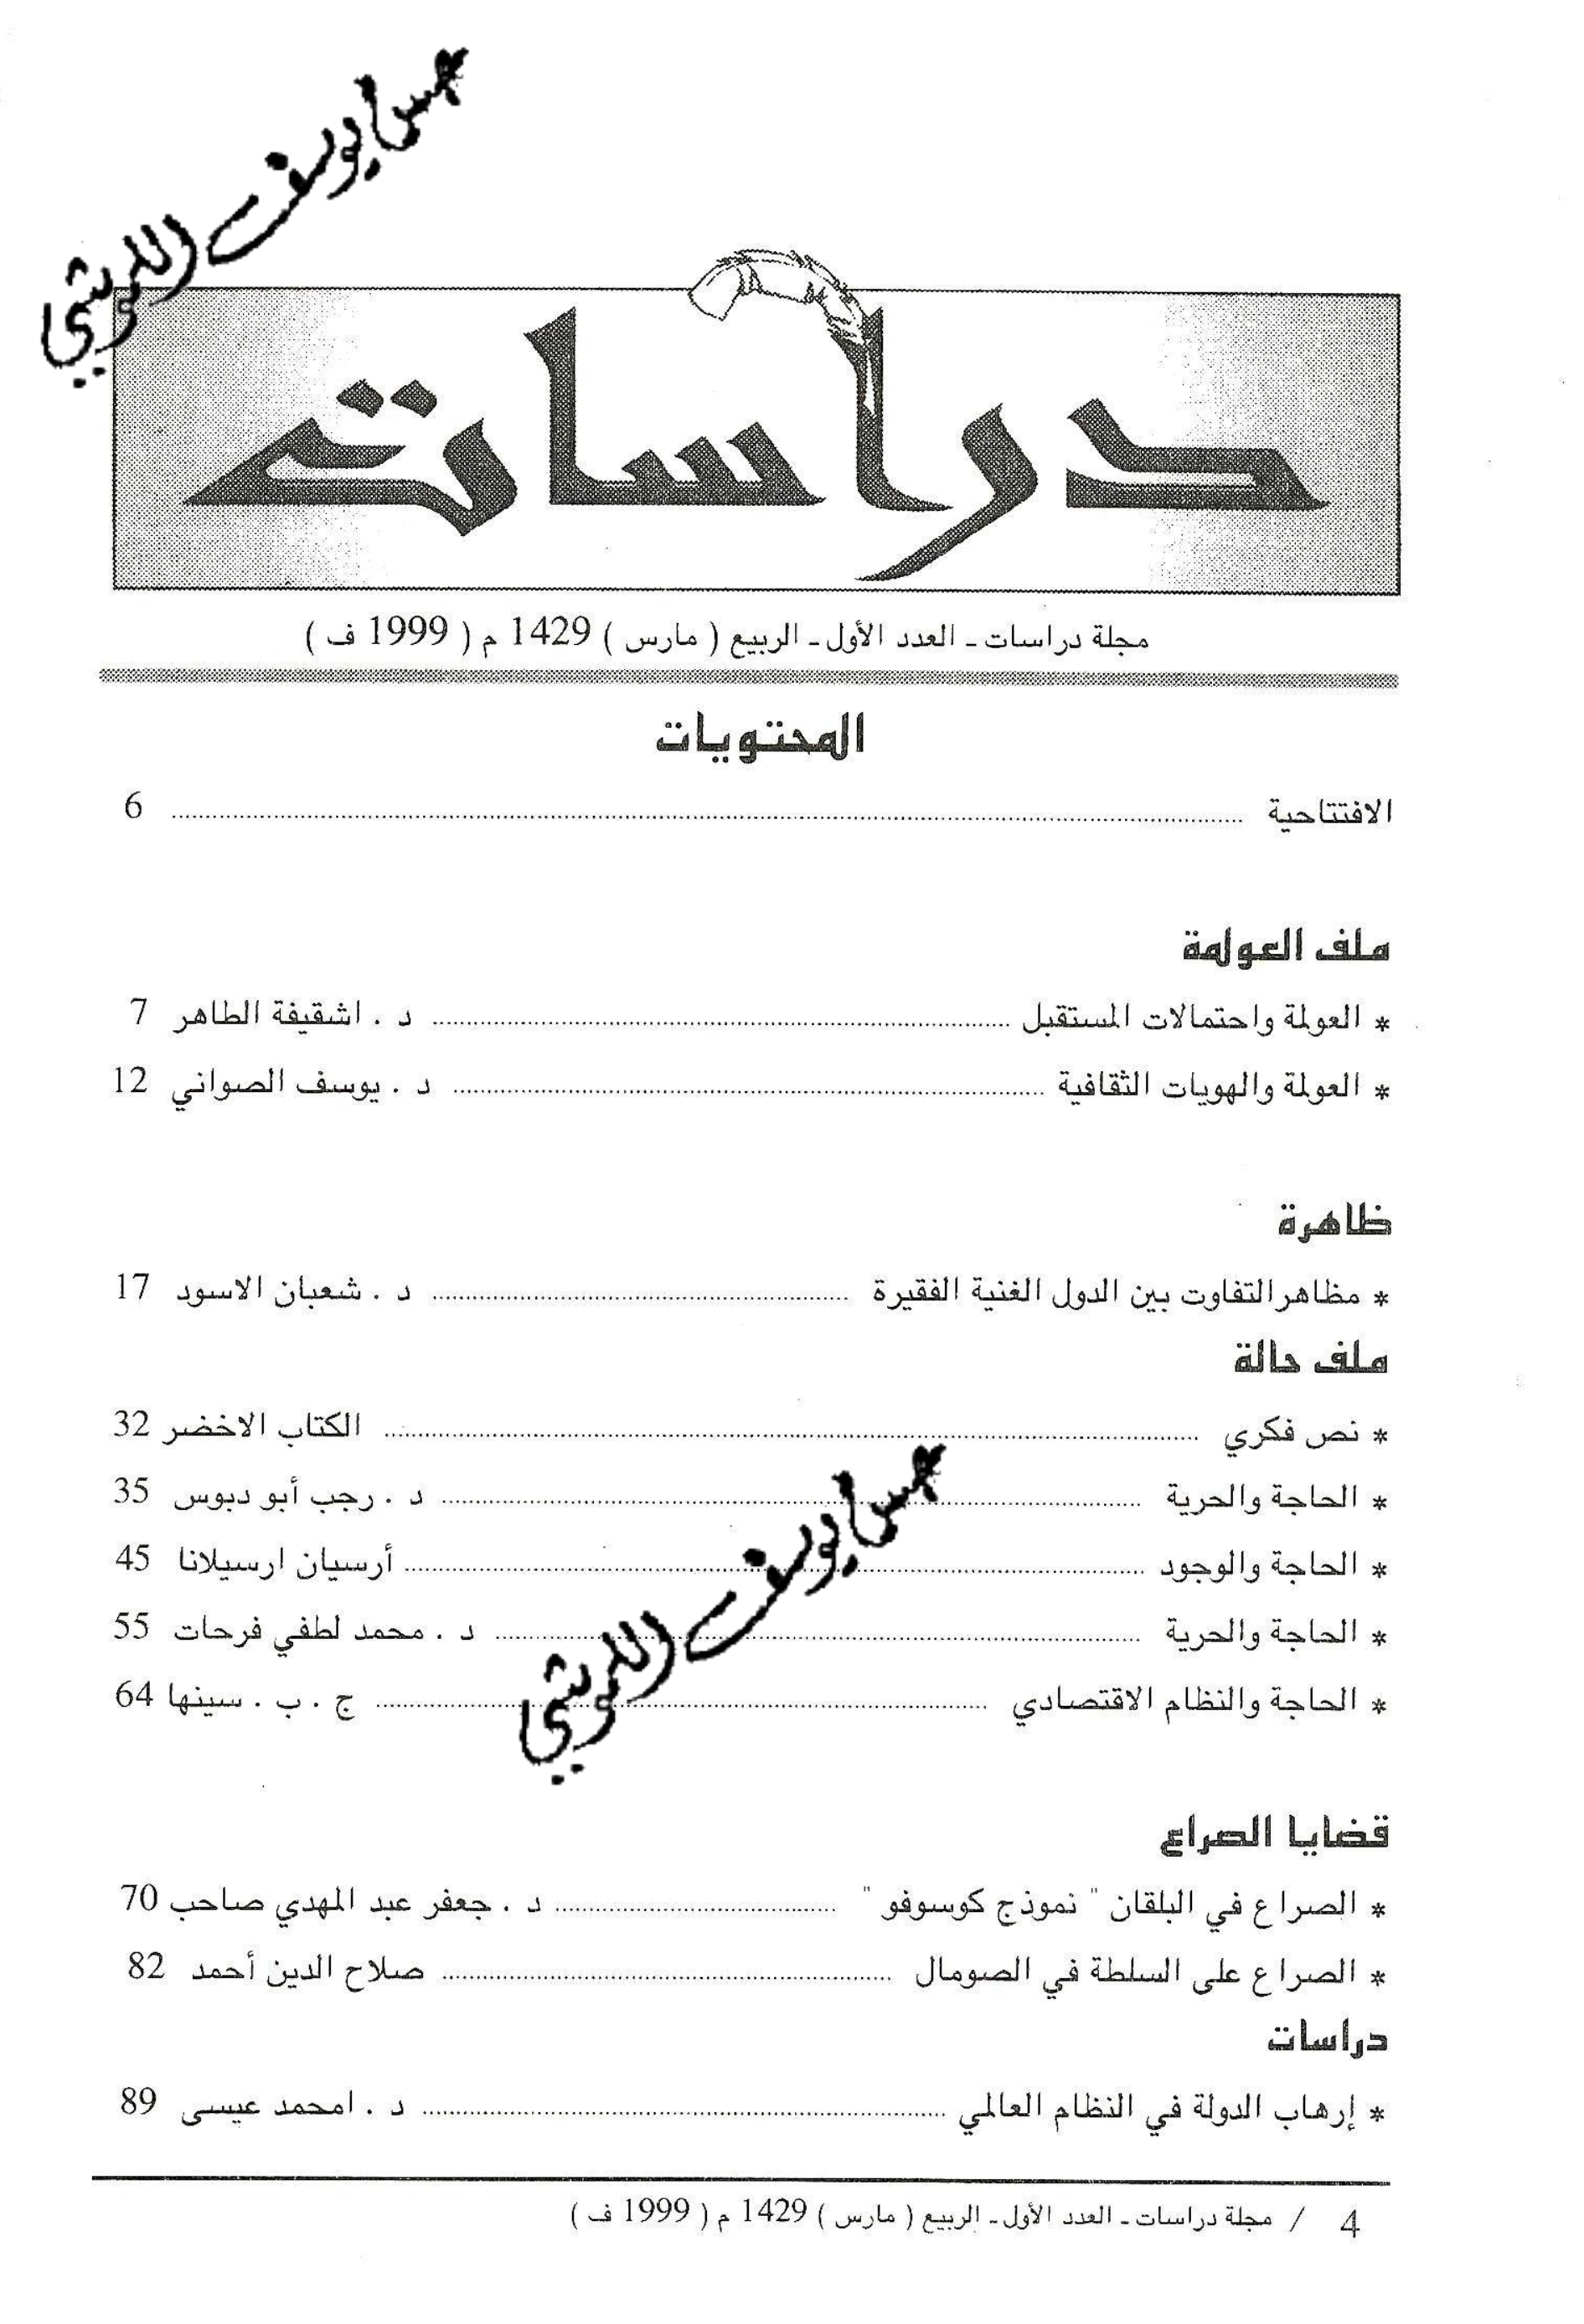 دراسات
مجلة دراسات ـ العدد الأول ـ الربيع ( مارس ) 1429 م ( 1999 ف )
المحتويات
الافتتاحية ........ 6
ملف العولمة
* العولمة واحتمالات المستقبل ........ د . اشقيفة الطاهر 7
* العولمة والهويات الثقافية ........ د . يوسف الصواني 12
ظاهرة
* مظاهرالتفاوت بين الدول الغنية الفقيرة ........ د . شعبان الاسود 17
ملف حالة
* نص فكري ........ الكتاب الاخضر 32
* الحاجة والحرية ........ د . رجب أبو دبوس 35
* الحاجة والوجود ........ أرسيان ارسيلانا 45
* الحاجة والحرية ........ د . محمد لطفي فرحات 55
* الحاجة والنظام الاقتصادي ........ ج . ب . سينها 64
قضايا الصراع
* الصراع في البلقان " نموذج كوسوفو " ........ د . جعفر عبد المهدي صاحب 70
* الصراع على السلطة في الصومال ........ صلاح الدين أحمد 82
دراسات
* إرهاب الدولة في النظام العالمي ........ د . امحمد عيسى 89
4 / مجلة دراسات ـ العدد الأول ـ الربيع ( مارس ) 1429 م ( 1999 ف )